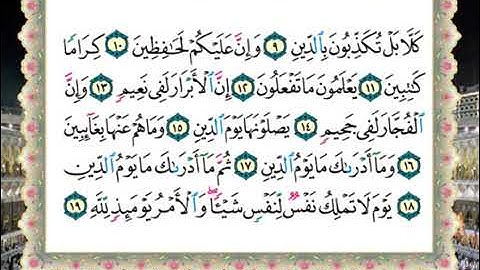 كَلَّا بَلْ تُكَذِّبُونَ بِالدِّينِ ٩ وَإِنَّ عَلَيْكُمْ لَحَافِظِينَ ١٠ كِرَامًا
كَاتِبِينَ ١١ يَعْلَمُونَ مَا تَفْعَلُونَ ١٢ إِنَّ الْأَبْرَارَ لَفِي نَعِيمٍ ١٣ وَإِنَّ
الْفُجَّارَ لَفِي جَحِيمٍ ١٤ يَصْلَوْنَهَا يَوْمَ الدِّينِ ١٥ وَمَا هُمْ عَنْهَا بِغَائِبِينَ
١٦ وَمَا أَدْرَىٰكَ مَا يَوْمُ الدِّينِ ١٧ ثُمَّ مَا أَدْرَىٰكَ مَا يَوْمُ الدِّينِ
١٨ يَوْمَ لَا تَمْلِكُ نَفْسٌ لِنَفْسٍ شَيْئًا ۖ وَالْأَمْرُ يَوْمَئِذٍ لِلَّهِ ١٩